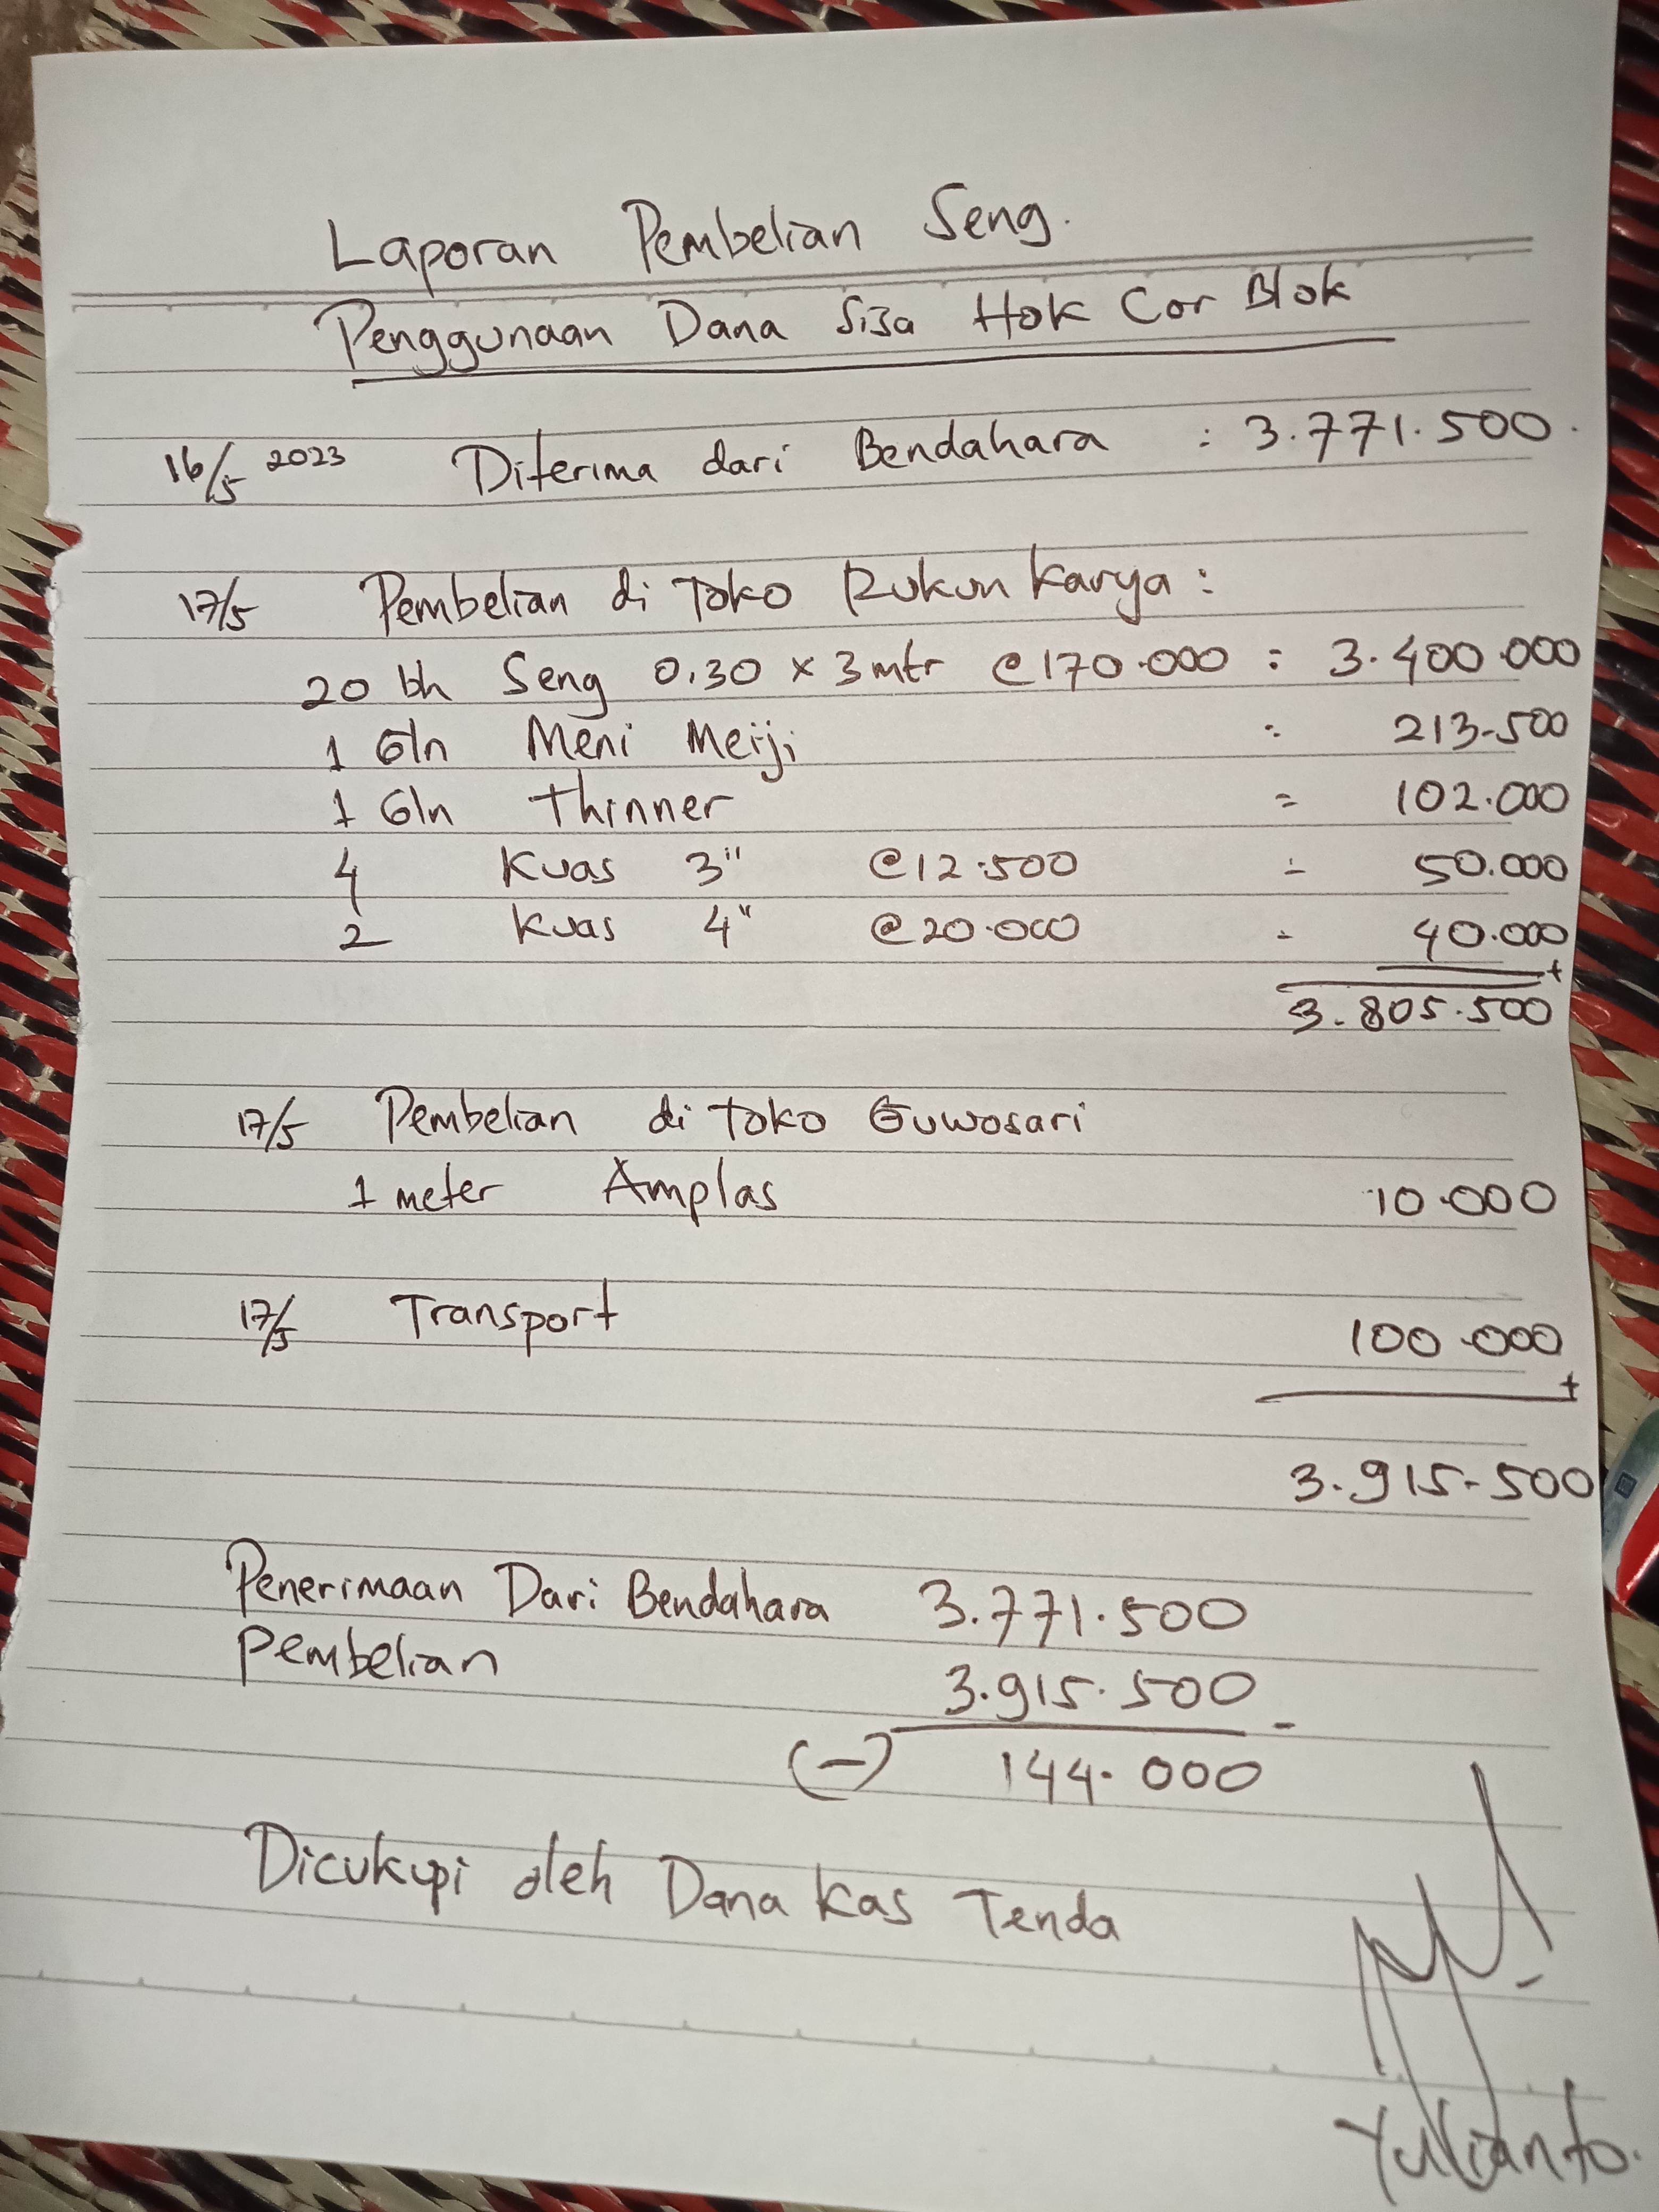 Laporan Pembelian Seng.
Penggunaan Dana Sisa Hok Cor Blok
16/5 2023 Diterima dari Bendahara : 3.771.500.
17/5 Pembelian di Toko Rukun Karya :
20 bh Seng 0.30 x 3 mtr @ 170.000 : 3.400.000
1 Gln Meni Meiji : 213.500
1 Gln Thinner = 102.000
4 Kuas 3" @ 12.500 = 50.000
2 Kuas 4" @ 20.000 = 40.000 +
3.805.500
17/5 Pembelian di toko Guwosari
1 meter Amplas 10.000
17/5 Transport 100.000 +
3.915.500
Penerimaan Dari Bendahara 3.771.500
Pembelian 3.915.500 -
(-) 144.000
Dicukupi oleh Dana Kas Tenda
Yulianto.